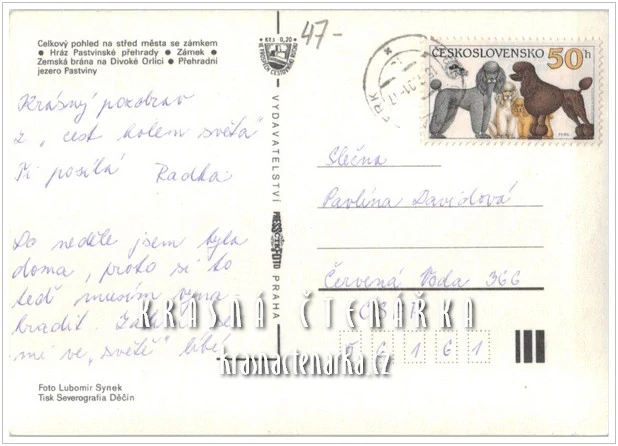 Celkový pohled na střed města se zámkem
• Hráz Pastvinské přehrady • Zámek •
Zemská brána na Divoké Orlici • Přehradní
jezero Pastviny
Kčs 0,20
47-
ČESKOSLOVENSKO 50h
Krásný pozdrav
z „cest kolem světa“
Ti posílá Radka
Do neděle jsem byla
doma, proto si to
teď musím vyna
hradit. Zatím se
mi ve „světě“ líbí.
VYDAVATELSTVÍ PRESSFOTO PRAHA
Slečna
Pavlína Davidová
Červená Voda 366
56161
KRÁSNÁ ČTENÁŘKA
krasnactenarka.cz
Foto Lubomír Synek
Tisk Severografia Děčín